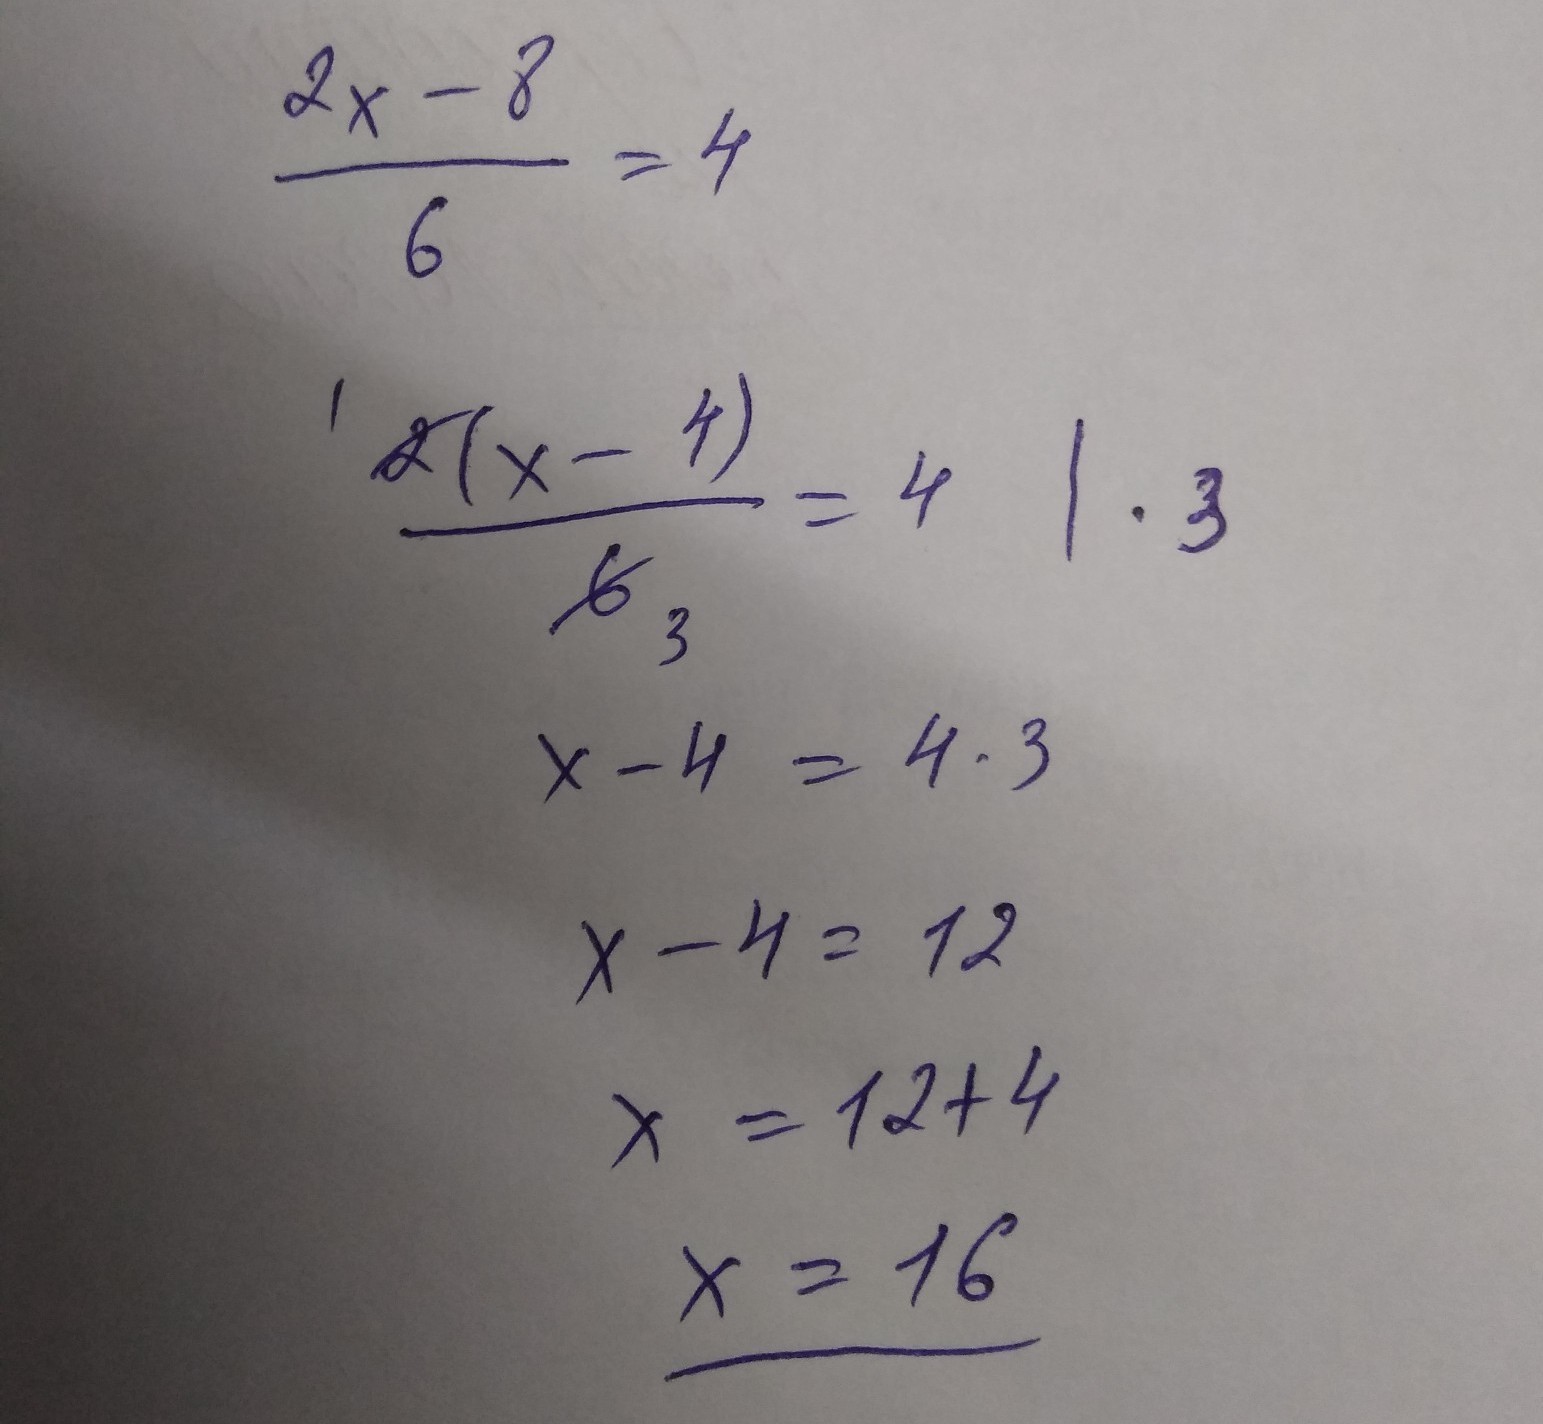 2x - 8
6
= 4
1 2(x - 4)
6 3
= 4 | · 3
x - 4 = 4 · 3
x - 4 = 12
x = 12 + 4
x = 16